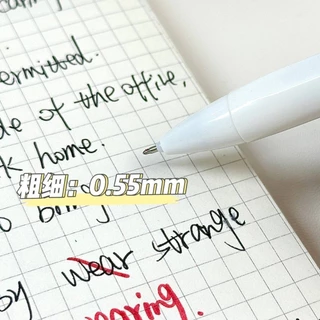 ermitted.
de of the office,
k home.
粗细：0.55mm
wear strange
earing.